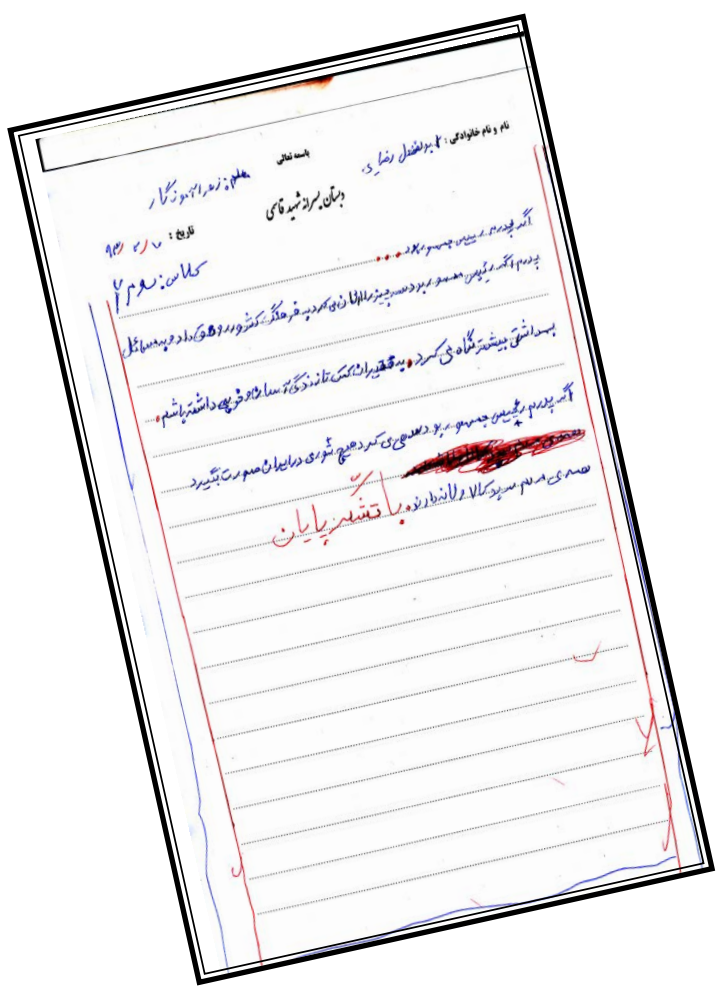 باسمه تعالی
نام و نام خانوادگی: ابوالفضل رضایی
معلم: زهرا آموزگار
دبستان پسرانه شهید قاسمی
تاریخ: ۹۳/۲/۷
کلاس: سوم ۲
اگر پدرم رییس جمهور بود...
پدرم اگر رئیس جمهور بود همه چیز را ارزان می کرد به فرهنگ کشور رونق می داد و به مسائل
بهداشتی بیشتر نگاه می کرد. به فقیران کمک تا زندگی آسان و خوبی داشته باشم.
اگر پدرم رئیس جمهور بود می کرد هیچ تروری در ایران صورت نگیرد
همه ی مردم سبد کالا رایانه دارند. با تشکر پایان